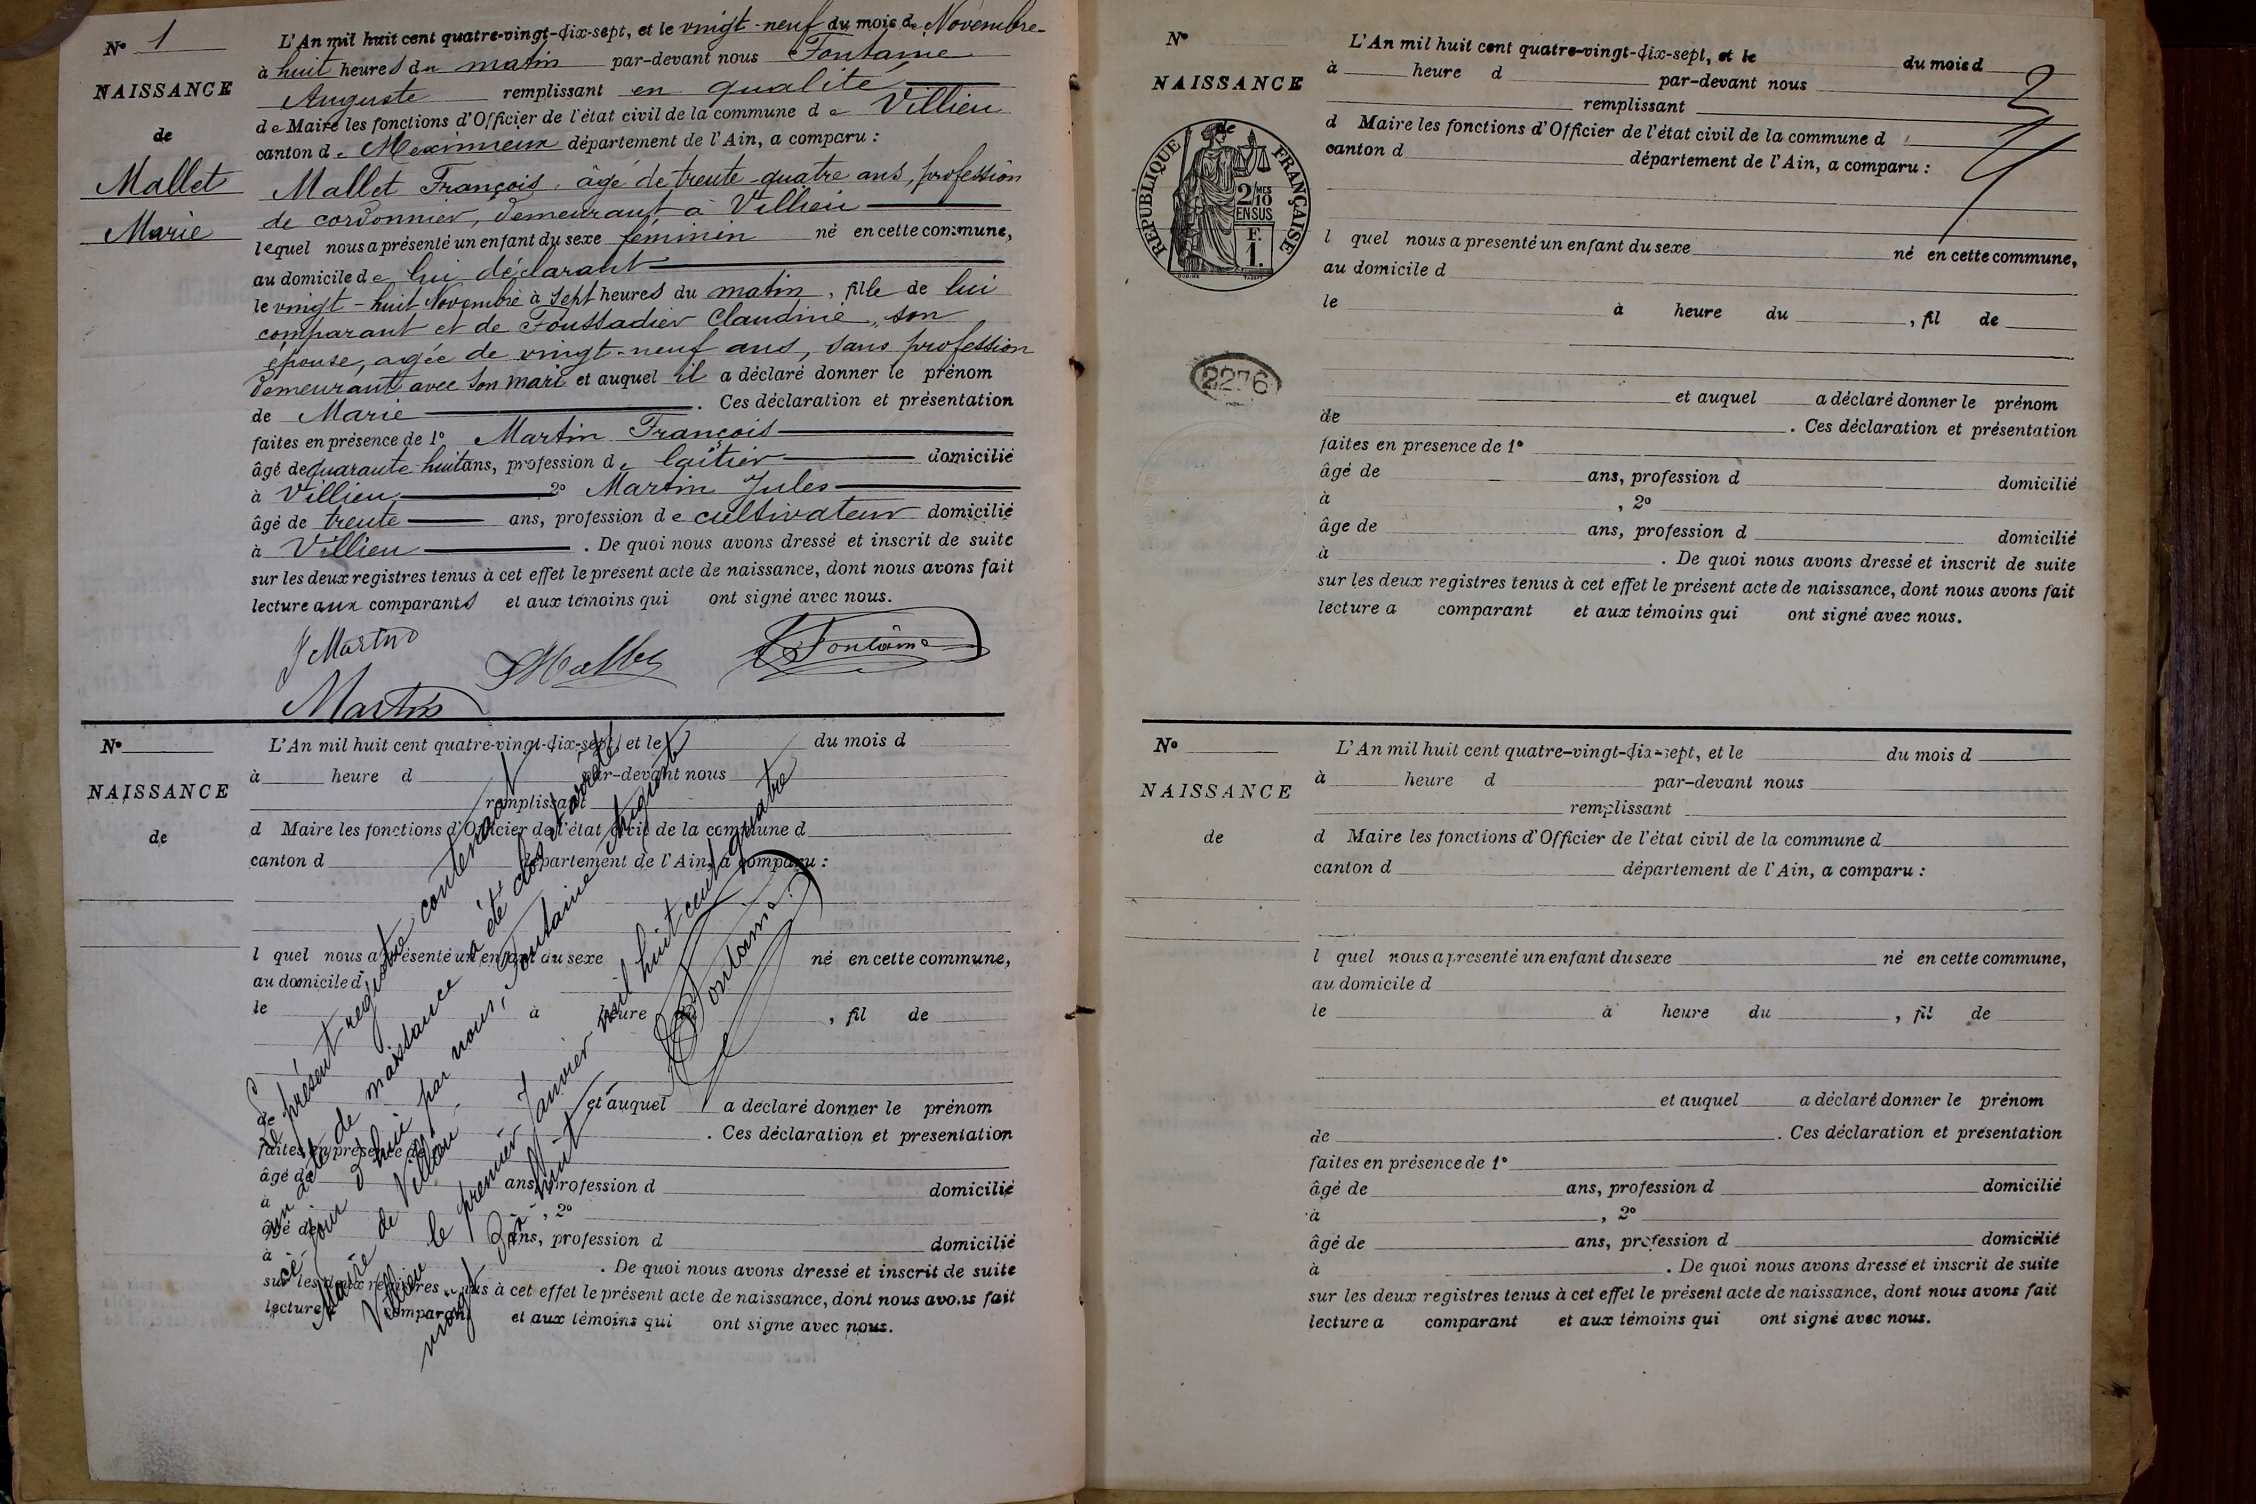 N° 1
NAISSANCE
de
Mallet
Marie
L'An mil huit cent quatre-vingt-dix-sept, et le vingt-neuf du mois de Novembre
à huit heures du matin par-devant nous Fontaine
Auguste remplissant en qualité
de Maire les fonctions d'Officier de l'état civil de la commune de Villieu
canton de Meximieux département de l'Ain, a comparu :
Mallet François, âgé de trente-quatre ans, profession
de cordonnier, demeurant à Villieu
lequel nous a présenté un enfant du sexe féminin né en cette commune,
au domicile de lui déclarant
le vingt-huit Novembre à sept heures du matin, fille de lui
comparant et de Foussadier Claudine, son
épouse, agée de vingt-neuf ans, sans profession
demeurant avec son mari et auquel il a déclaré donner le prénom
de Marie. Ces déclaration et présentation
faites en présence de 1° Martin François
âgé de quarante-huit ans, profession de laitier domicilié
à Villieu 2° Martin Jules
âgé de trente ans, profession de cultivateur domicilié
à Villieu. De quoi nous avons dressé et inscrit de suite
sur les deux registres tenus à cet effet le présent acte de naissance, dont nous avons fait
lecture aux comparants et aux témoins qui ont signé avec nous.
J Martin
F Mallet
A Fontaine
Martin
N°
NAISSANCE
de
L'An mil huit cent quatre-vingt-dix-sept, et le du mois d
à heure d par-devant nous
remplissant
d Maire les fonctions d'Officier de l'état civil de la commune d
canton d département de l'Ain, a comparu :
l quel nous a présenté un enfant du sexe né en cette commune,
au domicile d
le à heure du , fil de
et auquel a déclaré donner le prénom
de . Ces déclaration et présentation
faites en présence de 1°
âgé de ans, profession d domicilié
à , 2°
âgé de ans, profession d domicilié
à . De quoi nous avons dressé et inscrit de suite
sur les deux registres tenus à cet effet le présent acte de naissance, dont nous avons fait
lecture a comparant et aux témoins qui ont signé avec nous.
Le présent registre contenant
un acte de naissance a été clos et arrêté
ce jour d'hui par nous, Fontaine Auguste
Maire de Villieu.
Villieu le premier Janvier mil huit cent quatre
vingt dix huit
A Fontaine
N°
NAISSANCE
de
RÉPUBLIQUE FRANÇAISE
2/10MES
EN SUS
F.
1.
2276
L'An mil huit cent quatre-vingt-dix-sept, et le du mois d
à heure d par-devant nous
remplissant
d Maire les fonctions d'Officier de l'état civil de la commune d
canton d département de l'Ain, a comparu :
l quel nous a présenté un enfant du sexe né en cette commune,
au domicile d
le à heure du , fil de
et auquel a déclaré donner le prénom
de . Ces déclaration et présentation
faites en presence de 1°
âgé de ans, profession d domicilié
à , 2°
âge de ans, profession d domicilié
à . De quoi nous avons dressé et inscrit de suite
sur les deux registres tenus à cet effet le présent acte de naissance, dont nous avons fait
lecture a comparant et aux témoins qui ont signé avec nous.
N°
NAISSANCE
de
L'An mil huit cent quatre-vingt-dix-sept, et le du mois d
à heure d par-devant nous
remplissant
d Maire les fonctions d'Officier de l'état civil de la commune d
canton d département de l'Ain, a comparu :
l quel nous a présenté un enfant du sexe né en cette commune,
au domicile d
le à heure du , fil de
et auquel a déclaré donner le prénom
de . Ces déclaration et présentation
faites en présence de 1°
âgé de ans, profession d domicilié
à , 2°
âgé de ans, profession d domicilié
à . De quoi nous avons dressé et inscrit de suite
sur les deux registres tenus à cet effet le présent acte de naissance, dont nous avons fait
lecture a comparant et aux témoins qui ont signé avec nous.